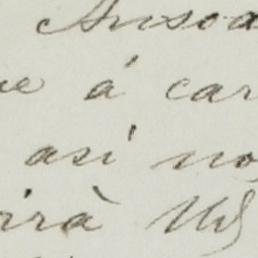 Ansoa
e á car
así no
irà Ud